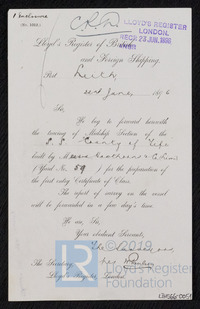 1 Enclosure
LLOYD'S REGISTER
LONDON
Lloyd's Register of British
and Foreign Shipping.
Port Leith
22nd June 1896
Sir,
We beg to forward herewith
the tracing of Midship Section of the
S.S. County of Fife
built by Messrs
(Yard No. 59) for the preparation of
the first entry Certificate of Class.
The report of survey on the vessel
will be forwarded in a few day's time.
We are, Sir,
Your obedient Servants,
The Secretary,
Lloyd's Register, London.
© 2019
Lloyd's Register
Foundation